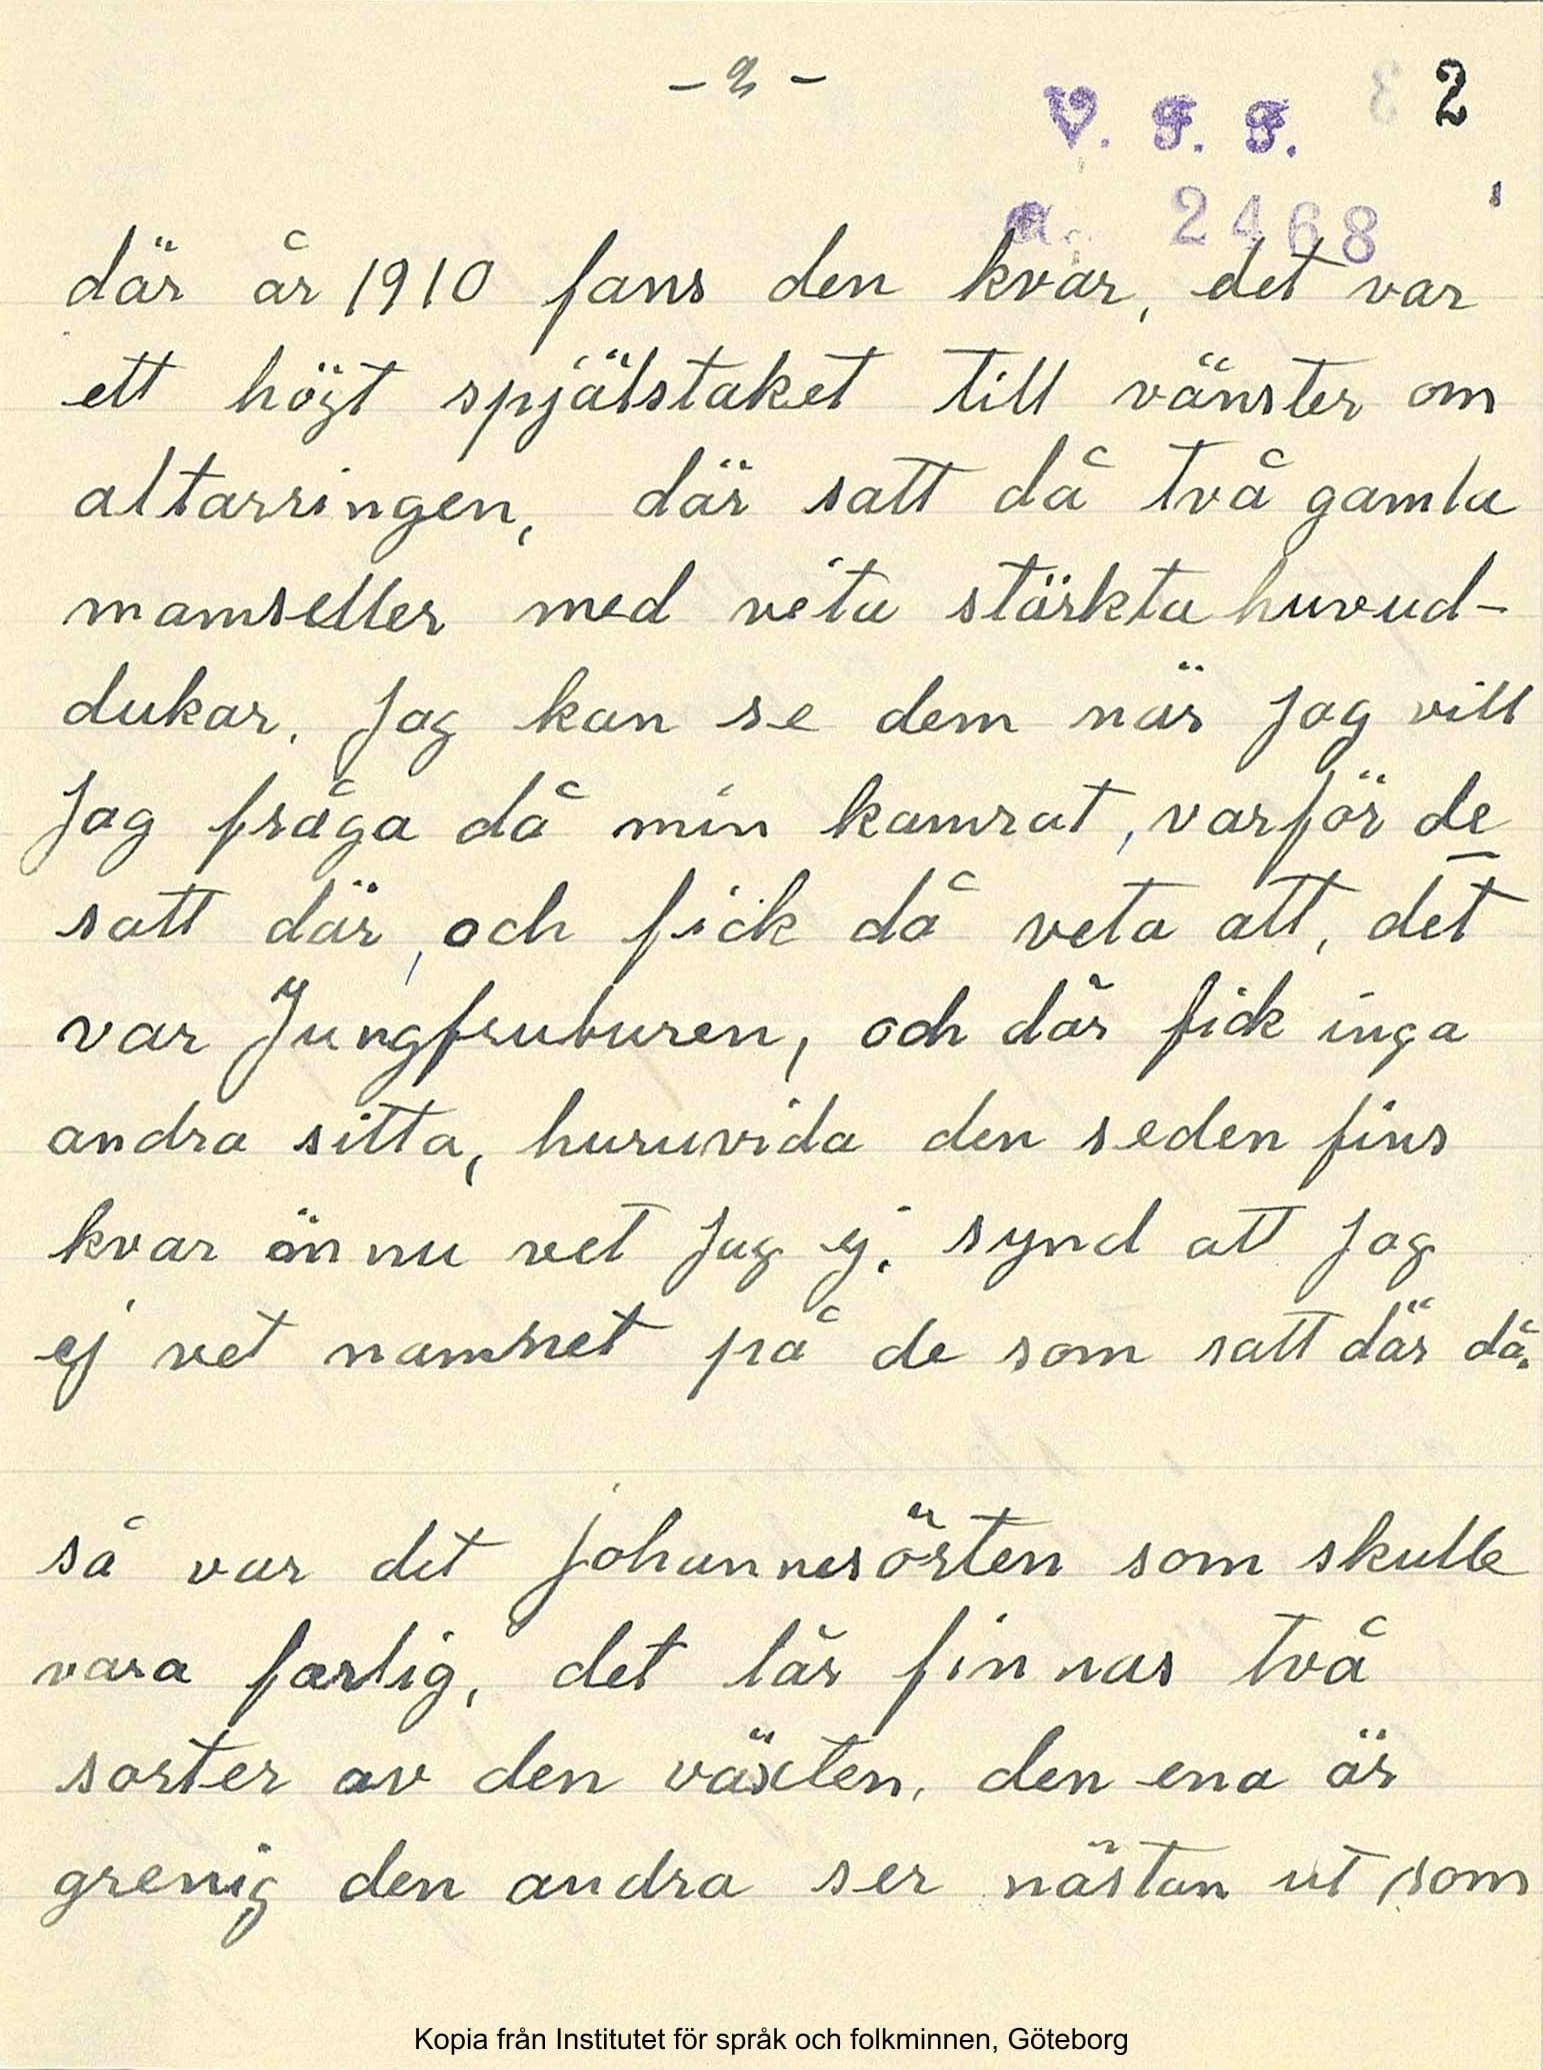 - 2 -
2
V. F. F.
a. 2468
där år 1910 fans den kvar, det var
ett högt spjälstaket till vänster om
altarringen, där satt då två gamla
mamseller med vita stärkta huvud-
dukar. Jag kan se dem när jag vill
Jag fråga då min kamrat, varför de
satt där, och fick då veta att, det
var Jungfruburen, och där fick inga
andra sitta, huruvida den seden fins
kvar ännu vet jag ej. synd att jag
ej vet namnet på de som satt där då.
så var det johannesörten som skulle
vara farlig, det lär finnas två
sorter av den växten, den ena är
grenig den andra ser nästan ut som
Kopia från Institutet för språk och folkminnen, Göteborg